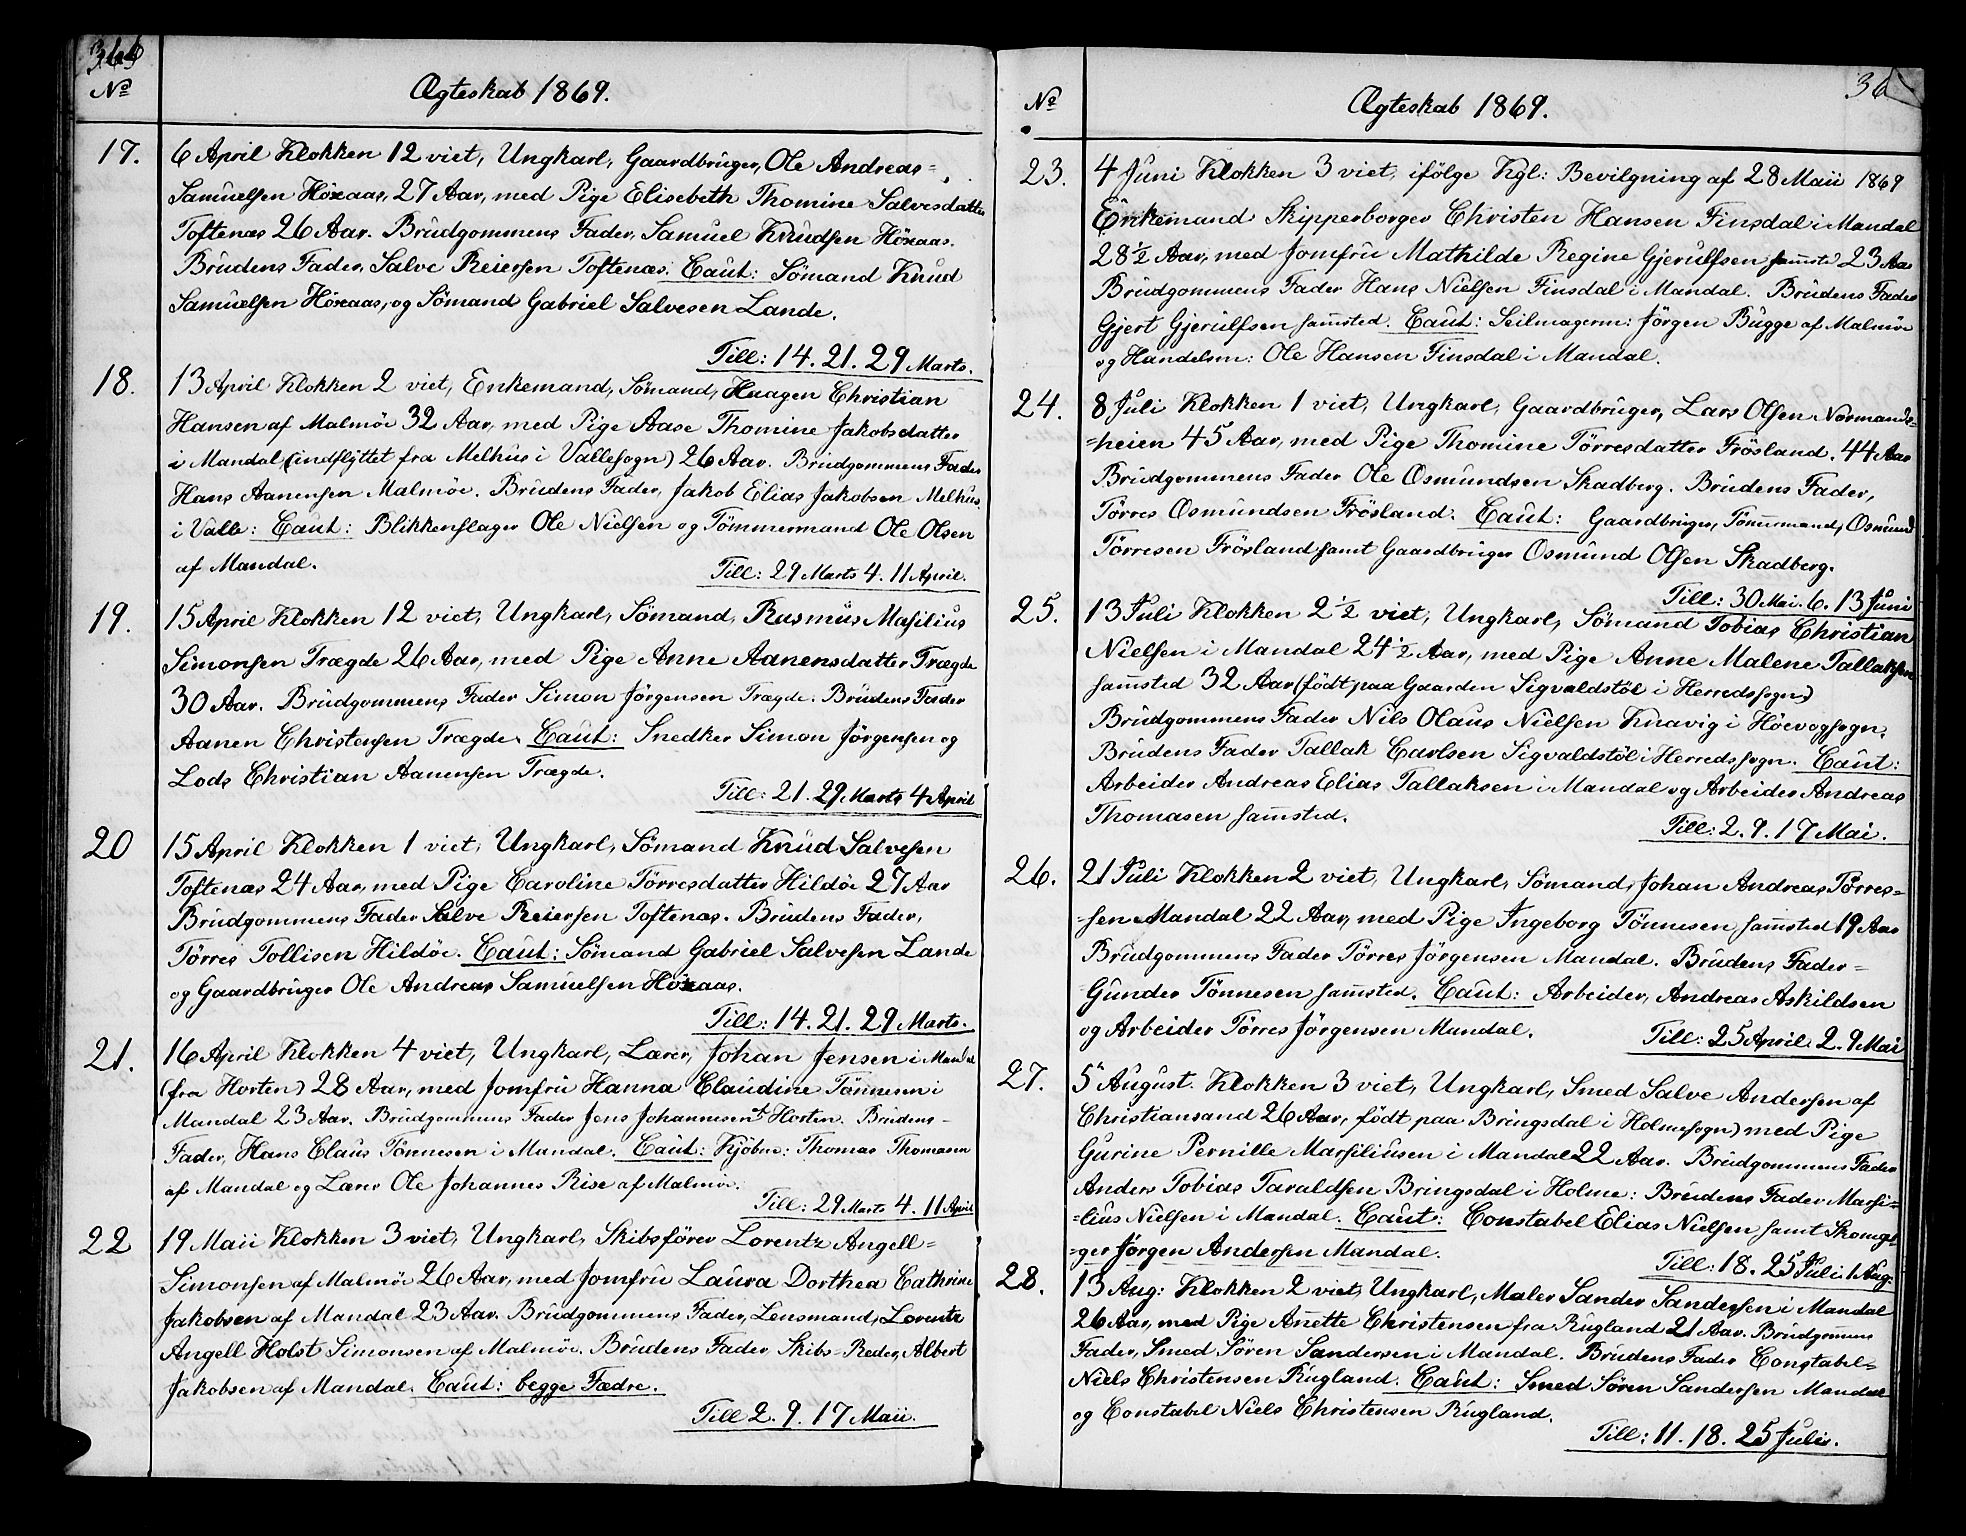 No
Ægteskab 1869.
17. 6 April Klokken 12 viet, Ungkarl, Gaardbruger, Ole Andreas=
Samuelsen Höxaas, 27 Aar, med Pige Elisebeth Thomine Salvesdatter
Toftenæs 26 Aar. Brudgommens Fader, Samuel Knudsen Höxaas.
Brudens Fader, Salve Reiersen Toftenæs. Caut: Sömand Knud
Samuelsen Höxaas, og Sömand Gabriel Salvesen Lande.
Till: 14. 21. 29 Marts.
18. 13 April Klokken 2 viet, Enkemand, Sömand, Haagen Christian
Hansen af Malmöe 32 Aar, med Pige Aase Thomine Jakobsdatter
i Mandal (indflyttet fra Melhus i Vallesogn) 26 Aar. Brudgommens Fader
Hans Aanensen Malmöe. Brudens Fader, Jakob Elias Jakobsen Melhus
i Valle: Caut: Blikkenslager Ole Nielsen og Tömmermand Ole Olsen
af Mandal.
Till: 29 Marts 4. 11 April.
19. 15 April Klokken 12 viet, Ungkarl, Sömand, Rasmus Masilius
Simonsen Trægde 26 Aar, med Pige Anne Aanensdatter Trægde
30 Aar. Brudgommens Fader Simon Jörgensen Trægde. Brudens Fader
Aanen Christensen Trægde. Caut: Snedker Simon Jörgensen og
Lods Christian Aanensen Trægde.
Till: 21. 29 Marts 4 April
20 15 April Klokken 1 viet, Ungkarl, Sömand Knud Salvesen
Toftenæs 24 Aar, med Pige Caroline Törresdatter Hildöe 27 Aar
Brudgommens Fader Salve Reiersen Toftenæs. Brudens Fader,
Törres Tollisen Hildöe. Caut: Sömand Gabriel Salvesen Lande
og Gaardbruger Ole Andreas Samuelsen Höxaas.
Till: 14. 21. 29 Marts.
21. 16 April Klokken 4 viet, Ungkarl, Lærer, Johan Jensen i Mandal
(fra Horten) 28 Aar, med Jomfru Hanna Claudine Tönnesen i
Mandal 23 Aar. Brudgommens Fader Jens Johannesen af Horten. Brudens=
Fader, Hans Claus Tönnesen i Mandal. Caut: Kjöbm: Thomas Thomasen
af Mandal og Lærer Ole Johannes Rise af Malmöe.
Till: 29 Marts 4. 11 April
22 19 Maii Klokken 3 viet, Ungkarl, Skibsförer Lorentz Angell=
Simonsen af Malmöe 26 Aar, med Jomfru Laura Dorthea Cathrine
Jakobsen af Mandal 23 Aar. Brudgommens Fader, Lensmand, Lorentz
Angell Holst Simonsen af Malmöe. Brudens Fader Skibs=Reder, Albert
Jakobsen af Mandal. Caut: begge Fædre.
Till 2. 9. 17 Maii.
No
Ægteskab 1869.
23. 4 Juni Klokken 3 viet, ifölge Kgl: Bevilgning af 28 Maii 1869
Enkemand Skipperborger Christen Hansen Finsdal i Mandal
28 1/2 Aar, med Jomfru Mathilde Regine Gjerulfsen samsted 23 Aar
Brudgommens Fader Hans Nielsen Finsdal i Mandal. Brudens Fader
Gjert Gjerulfsen samsted. Caut: Seilmagerm: Jörgen Bugge af Malmöe
og Handelsm: Ole Hansen Finsdal i Mandal.
24. 8 Juli Klokken 1 viet, Ungkarl, Gaardbruger, Lars Olsen Normands=
=heien 45 Aar, med Pige Thomine Törresdatter Frösland. 44 Aar
Brudgommens Fader Ole Osmundsen Skadberg. Brudens Fader,
Törres Osmundsen Frösland. Caut: Gaardbruger, Tömmermand, Osmund
Törresen Frösland samt Gaardbruger Osmund Olsen Skadberg.
Till: 30 Mai. 6. 13 Juni
25. 13 Juli Klokken 2 1/2 viet, Ungkarl, Sömand Tobias Christian
Nielsen i Mandal 24 1/2 Aar, med Pige Anne Malene Tallaksen
samsted 32 Aar (födt paa Gaarden Sigvaldstöl i Herredssogn)
Brudgommens Fader Nils Olaus Nielsen Knavig i Höevogsogn,
Brudens Fader Tallak Carlsen Sigvaldstöl i Herredssogn. Caut:
Arbeider Andreas Elias Tallaksen i Mandal og Arbeider Andreas
Thomasen samsted.
Till: 2. 9. 17 Mai.
26. 21 Juli Klokken 2 viet, Ungkarl, Sömand, Johan Andreas Törres=
=sen Mandal 22 Aar, med Pige Ingeborg Tönnesen samsted 19 Aar
Brudgommens Fader Törres Jörgensen Mandal. Brudens Fader=
Gunder Tönnesen samsted. Caut: Arbeider, Andreas Askildsen
og Arbeider Törres Jörgensen Mandal.
Till: 25 April. 2. 9 Mai
27. 5 August. Klokken 3 viet, Ungkarl, Smed Salve Andersen af
Christiansand 26 Aar, födt paa Bringsdal i Holmesogn) med Pige
Gurine Pernille Marsiliusen i Mandal 22 Aar. Brudgommens Fader
Anders Tobias Taraldsen Bringsdal i Holme: Brudens Fader Marsi=
=lius Nielsen i Mandal. Caut: Constabel Elias Nielsen samt Skoma=
=ger Jörgen Andersen Mandal.
Till: 18. 25 Juli 1 Aug.
28. 13 Aug: Klokken 2 viet, Ungkarl, Maler Sander Sandersen i Mandal
26 Aar, med Pige Anette Christensen fra Rugland 21 Aar. Brudgommens
Fader, Smed Sören Sandersen i Mandal. Brudens Fader Constabel=
Niels Christensen Rugland. Caut: Smed Sören Sandersen Mandal
og Constabel Niels Christensen Rugland.
Till: 11. 18. 25 Juli.